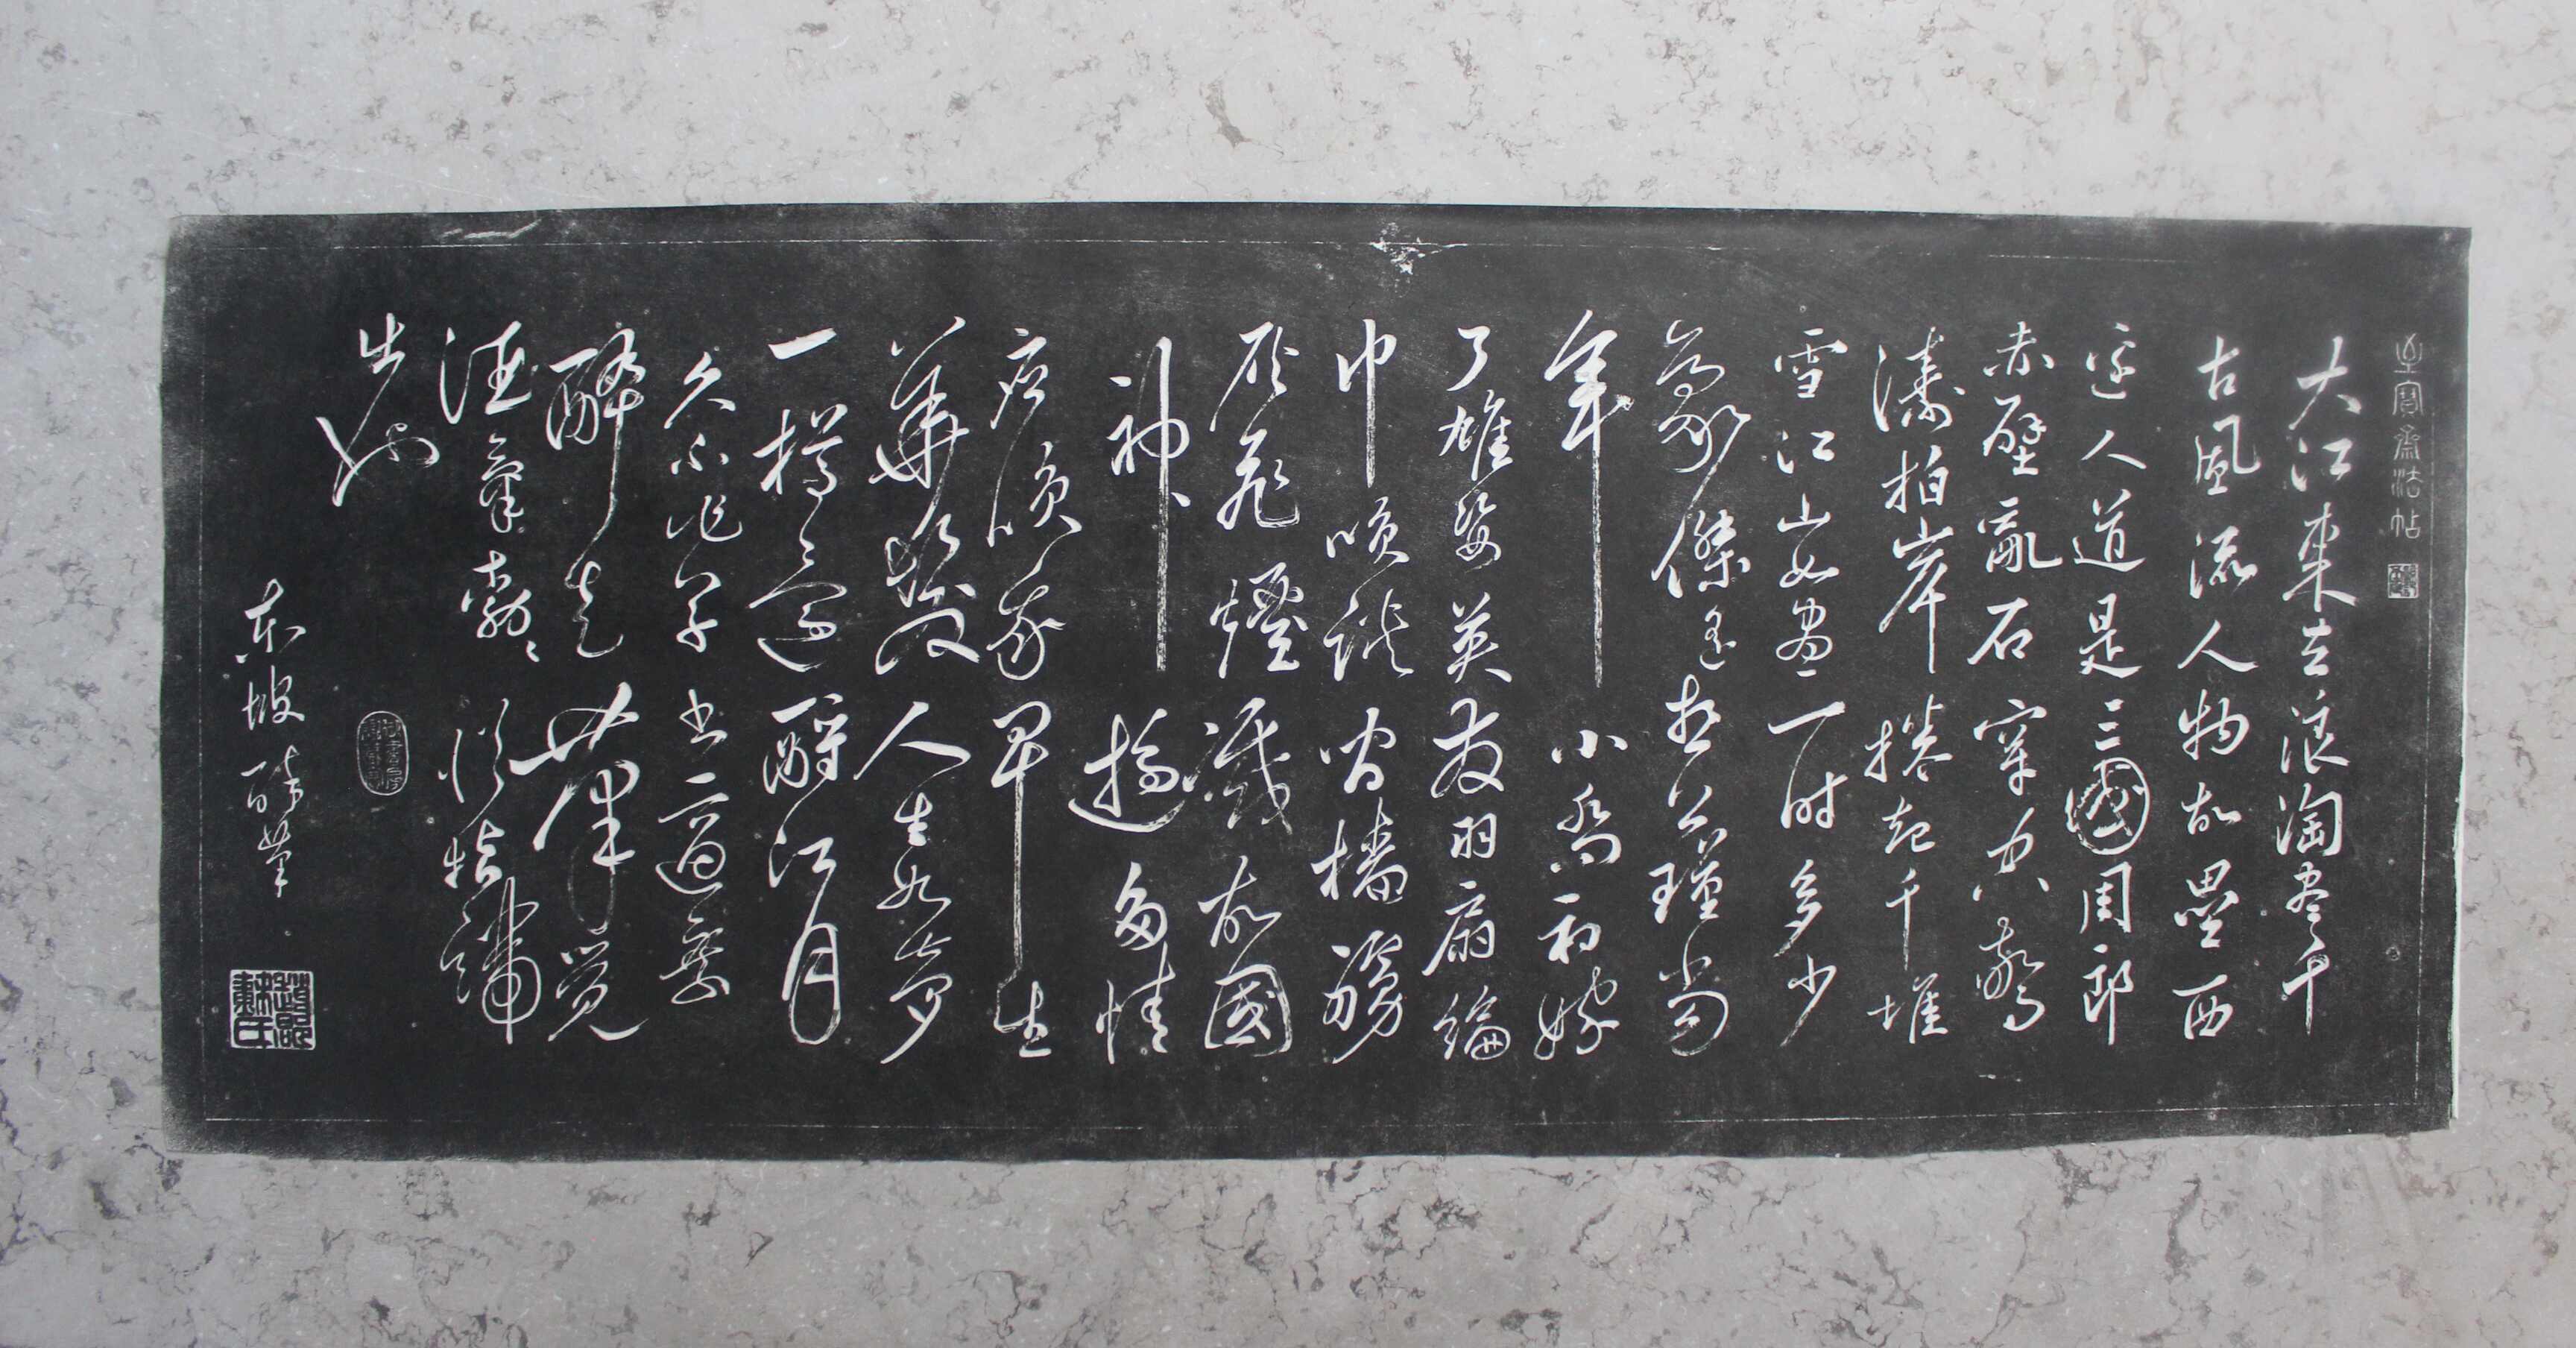 至寶齋法帖
大江東去浪淘盡千
古風流人物故壘西
邊人道是三國周郎
赤壁亂石穿空驚
濤拍岸捲起千堆
雪江山如畫一時多少
豪傑遙想公瑾當
年小喬初嫁
了雄姿英發羽扇綸
巾談笑間檣櫓
灰飛煙滅故國
神遊多情
應笑我早生
華髮人生如夢
一樽還酹江月
久不作草書適乘
醉走筆覺
酒氣勃勃從指端
出也
東坡醉筆